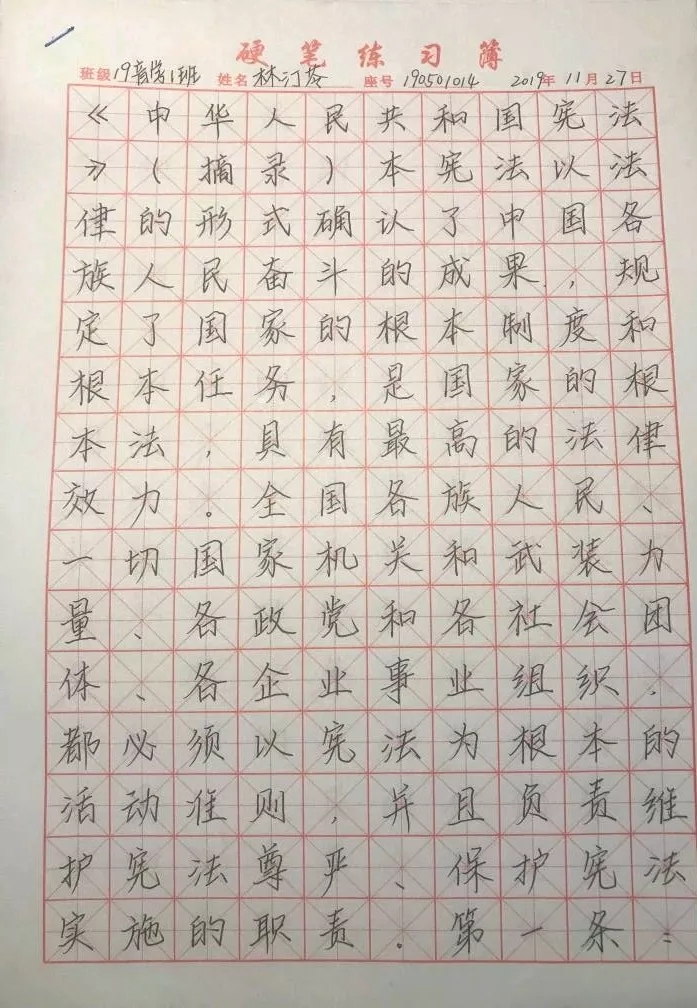 硬笔练习簿
班级 19音学1班 姓名 林汀苓 座号 190501014 2019年11月27日
《中华人民共和国宪法
》(摘录)本宪法以法
律的形式确认了中国各
族人民奋斗的成果,规
定了国家的根本制度和
根本任务,是国家的根
本法,具有最高的法律
效力。全国各族人民、
一切国家机关和武装力
量、各政党和各社会团
体、各企业事业组织.
都必须以宪法为根本的
活动准则,并且负责维
护宪法尊严、保护宪法
实施的职责.第一条: